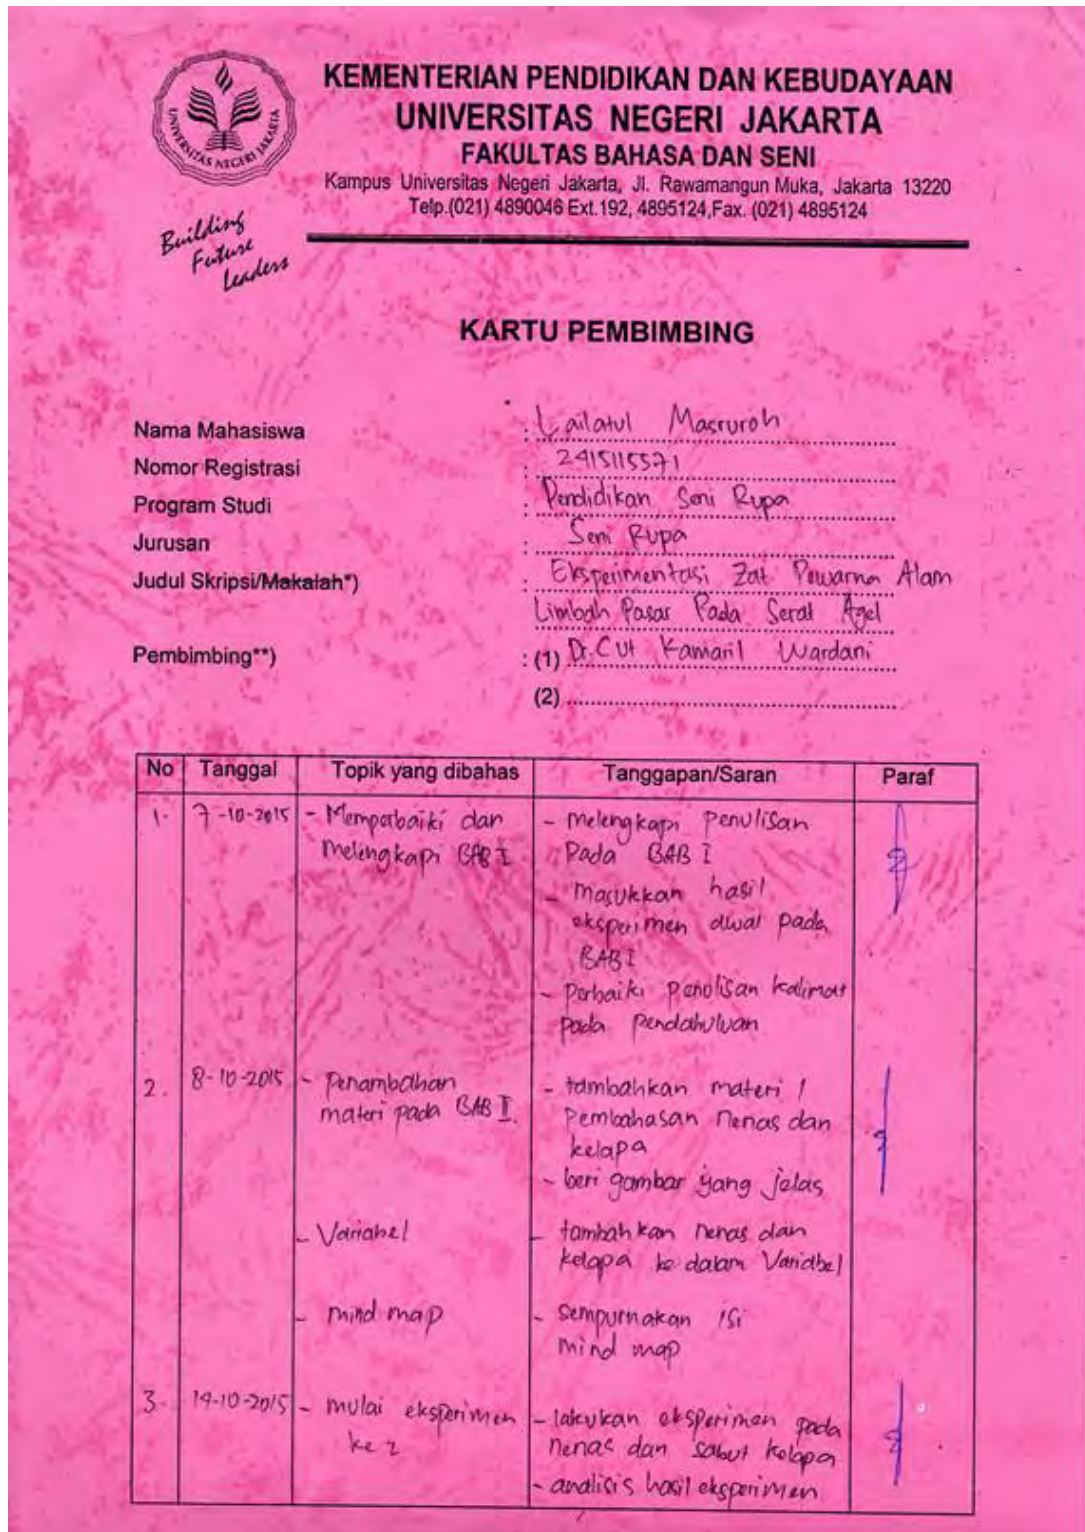 UNIVERSITAS NEGERI JAKARTA
Building
Future
Leaders
KEMENTERIAN PENDIDIKAN DAN KEBUDAYAAN
UNIVERSITAS NEGERI JAKARTA
FAKULTAS BAHASA DAN SENI
Kampus Universitas Negeri Jakarta, Jl. Rawamangun Muka, Jakarta 13220
Telp.(021) 4890046 Ext.192, 4895124,Fax. (021) 4895124
KARTU PEMBIMBING
Nama Mahasiswa : Lailatul Masruroh
Nomor Registrasi : 2415115571
Program Studi : Pendidikan Seni Rupa
Jurusan : Seni Rupa
Judul Skripsi/Makalah*) : Eksperimentasi Zat Pewarna Alam
Limbah Pasar Pada Serat Agel
Pembimbing**) : (1) Dr. Cut Kamaril Wardani
(2)
No Tanggal Topik yang dibahas Tanggapan/Saran Paraf
1. 7-10-2015 - Memperbaiki dan - melengkapi penulisan
melengkapi BAB I Pada BAB I
- masukkan hasil
eksperimen awal pada
BAB I
- Perbaiki penulisan kalimat
pada pendahuluan
2. 8-10-2015 - Penambahan - tambahkan materi /
materi pada BAB II. Pembahasan nenas dan
kelapa
- beri gambar yang jelas
- Variabel - tambahkan nenas dan
kelapa ke dalam Variabel
- mind map - sempurnakan isi
mind map
3. 14-10-2015 - mulai eksperimen - lakukan eksperimen pada
ke 2 nenas dan sabut kelapa
- analisis hasil eksperimen